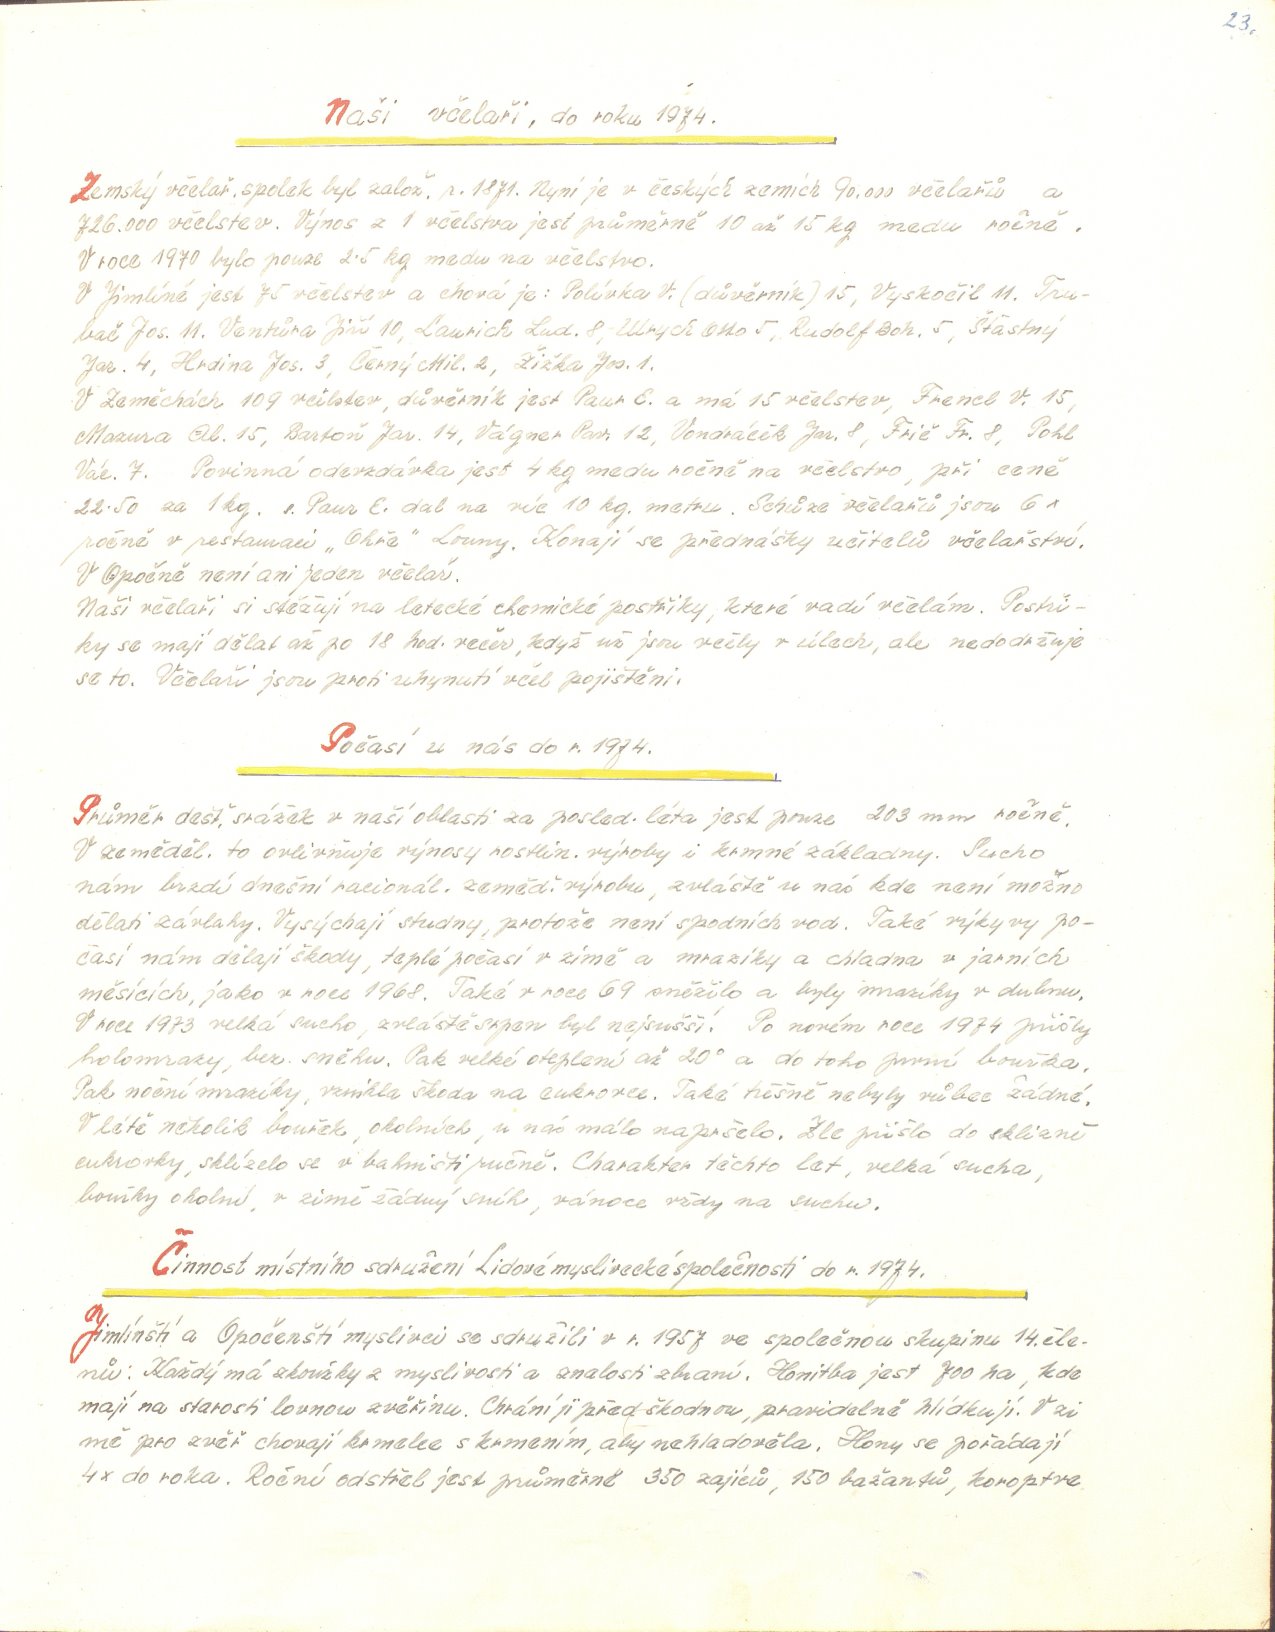 23.
Naši včelaři, do roku 1974.
Zemský včelař. spolek byl založ. r. 1871. Nyní je v českých zemích 90.000 včelařů a
726.000 včelstev. Výnos z 1 včelstva jest průměrně 10 až 15 kg medu ročně.
V roce 1970 bylo pouze 2·5 kg medu na včelstvo.
V Jimlíně jest 75 včelstev a chová je: Polívka V. (důvěrník) 15, Vyskočil 11. Tru-
bač Jos. 11. Ventůra Jiří 10, Laurich Lud. 8, Ulrych Otto 5, Rudolf Boh. 5, Šťastný
Jar. 4, Hrdina Jos. 3, Černý Mil. 2, Žižka Jos. 1.
V Zeměchách 109 včelstev, důvěrník jest Paur E. a má 15 včelstev, Frencl V. 15,
Mazura Al. 15, Bartoň Jar. 14, Vágner Pav. 12, Vondráček Jar. 8, Frič Fr. 8, Pohl
Vác. 7. Povinná odevzdávka jest 4 kg medu ročně na včelstvo, při ceně
22·50 za 1 kg. s. Paur E. dal na víc 10 kg. metru. Schůze včelařů jsou 6 x
ročně v restauraci „Ohře" Louny. Konají se přednášky učitelů včelařství.
V Opočně není ani jeden včelař.
Naši včelaři si stěžují na letecké chemické postřiky, které vadí včelám. Postři-
ky se mají dělat až po 18 hod. večer, když už jsou včely v úlech, ale nedodržuje
se to. Včelaři jsou proti uhynutí včel pojištěni.
Počasí u nás do r. 1974.
Průměr dešť. srážek v naší oblasti za posled. léta jest pouze 203 mm ročně.
V zeměděl. to ovlivňuje výnosy rostlin. výroby i krmné základny. Sucho
nám brzdí dnešní racionál. zeměd. výrobu, zvláště u nás kde není možno
dělati závlahy. Vysýchají studny, protože není spodních vod. Také výkyvy po-
časí nám dělají škody, teplé počasí v zimě a mrazíky a chladna v jarních
měsících, jako v roce 1968. Také v roce 69 sněžilo a byly mrazíky v dubnu.
V roce 1973 velká sucha, zvláště srpen byl nejsušší. Po novém roce 1974 přišly
holomrazy, bez sněhu. Pak velké oteplení až 20° a do toho první bouřka.
Pak noční mrazíky, vznikla škoda na cukrovce. Také třešně nebyly vůbec žádné.
V létě několik bouřek, okolních, u nás málo napršelo. Zle přišlo do sklizně
cukrovky, sklízelo se v bahništi ručně. Charakter těchto let, velká sucha,
bouřky okolní, v zimě žádný sníh, vánoce vždy na suchu.
Činnost místního sdružení Lidové myslivecké společnosti do r. 1974.
Jimlínští a Opočenští myslivci se sdružili v r. 1957 ve společnou skupinu 14. čle-
nů. Každý má zkoušky z myslivosti a znalosti zbraní. Honitba jest 700 ha, kde
mají na starosti lovnou zvěřinu. Chrání ji před škodnou, pravidelně hlídkují. V zi
mě pro zvěř chovají krmelce s krmením, aby nehladověla. Hony se pořádají
4x do roka. Roční odstřel jest průměrně 350 zajíců, 150 bažantů, koroptve